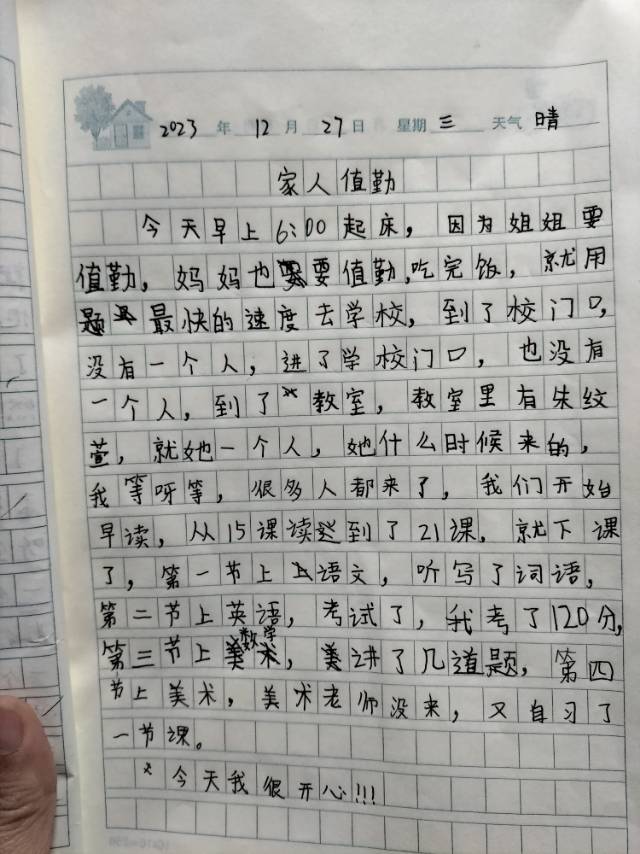 2023年12月27日 星期三 天气晴
家人值勤
今天早上6:00起床，因为姐姐要
值勤，妈妈也要值勤，吃完饭，就用
最快的速度去学校，到了校门口，
没有一个人，进了学校门口，也没有
一个人，到了教室，教室里有朱纹
萱，就她一个人，她什么时候来的，
我等呀等，很多人都来了，我们开始
早读，从15课读到了21课，就下课
了，第一节上语文，听写了词语，
第二节上英语，考试了，我考了120分，
第三节上数学，讲了几道题，第四
节上美术，美术老师没来，又自习了
一节课。
今天我很开心!!!